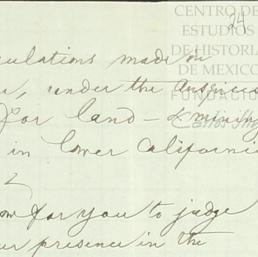 CENTRO DE
ESTUDIOS
DE HISTORIA
DE MEXICO
FUNDACIÓN
24
ulations made on
, under the auspices
for land - & mining
in lower Californi
for you to judge
presence in the